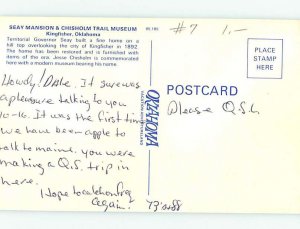 SEAY MANSION & CHISHOLM TRAIL MUSEUM
Kingfisher, Oklahoma
Territorial Governor Seay built a fine home on a
hill top overlooking the city of Kingfisher in 1892
The home has been restored and furnished with
items of the era. Jesse Chisholm is commemorated
here with a modern museum bearing his name
#7 1.-
POSTCARD
PLACE
STAMP
HERE
OKLAHOMA
Please QSL
Howdy! It sure was
a pleasure talking to you
10-16. It was the first time
we have been apple to
talk to maine. you were
making a Q.S. trip in
here.
Hope to catch on freq
again! 73's